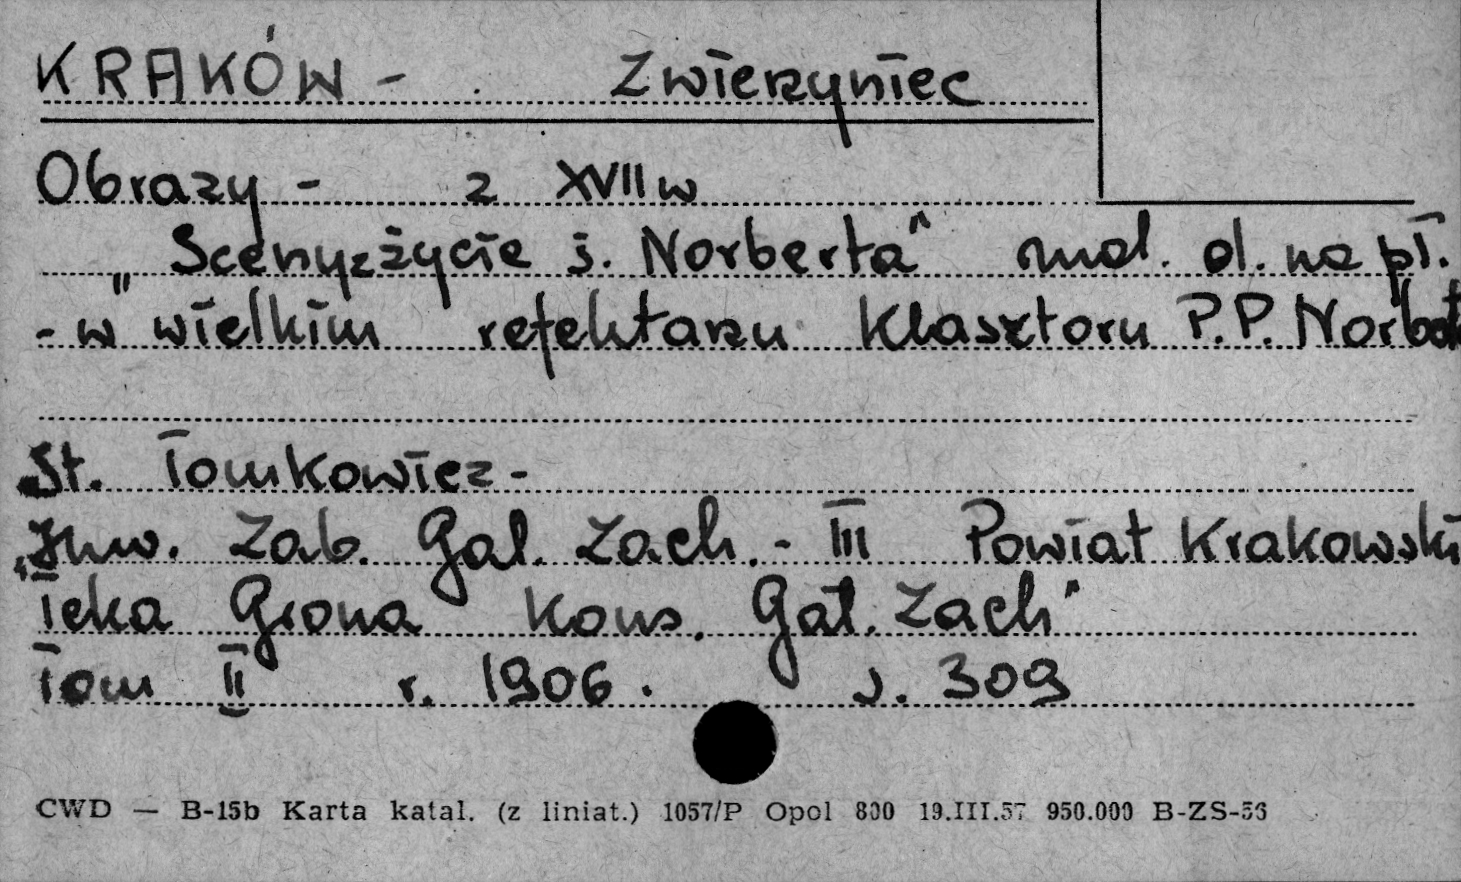 KRAKÓW - Zwierzyniec
Obrazy - z XVII w
„Sceny z życie ś. Norberta" mal. ol. na pł.
- w wielkim refektarzu Klasztoru P.P. Norbert
St. Tomkowicz -
„Inw. Zab. Gal. Zach. - III Powiat Krakowski
Teka Grona Kons. Gal. Zach"
Tom II r. 1906. s. 309
CWD — B-15b Karta katal. (z liniat.) 1057/P Opol 800 19.III.57 950.000 B-ZS-56